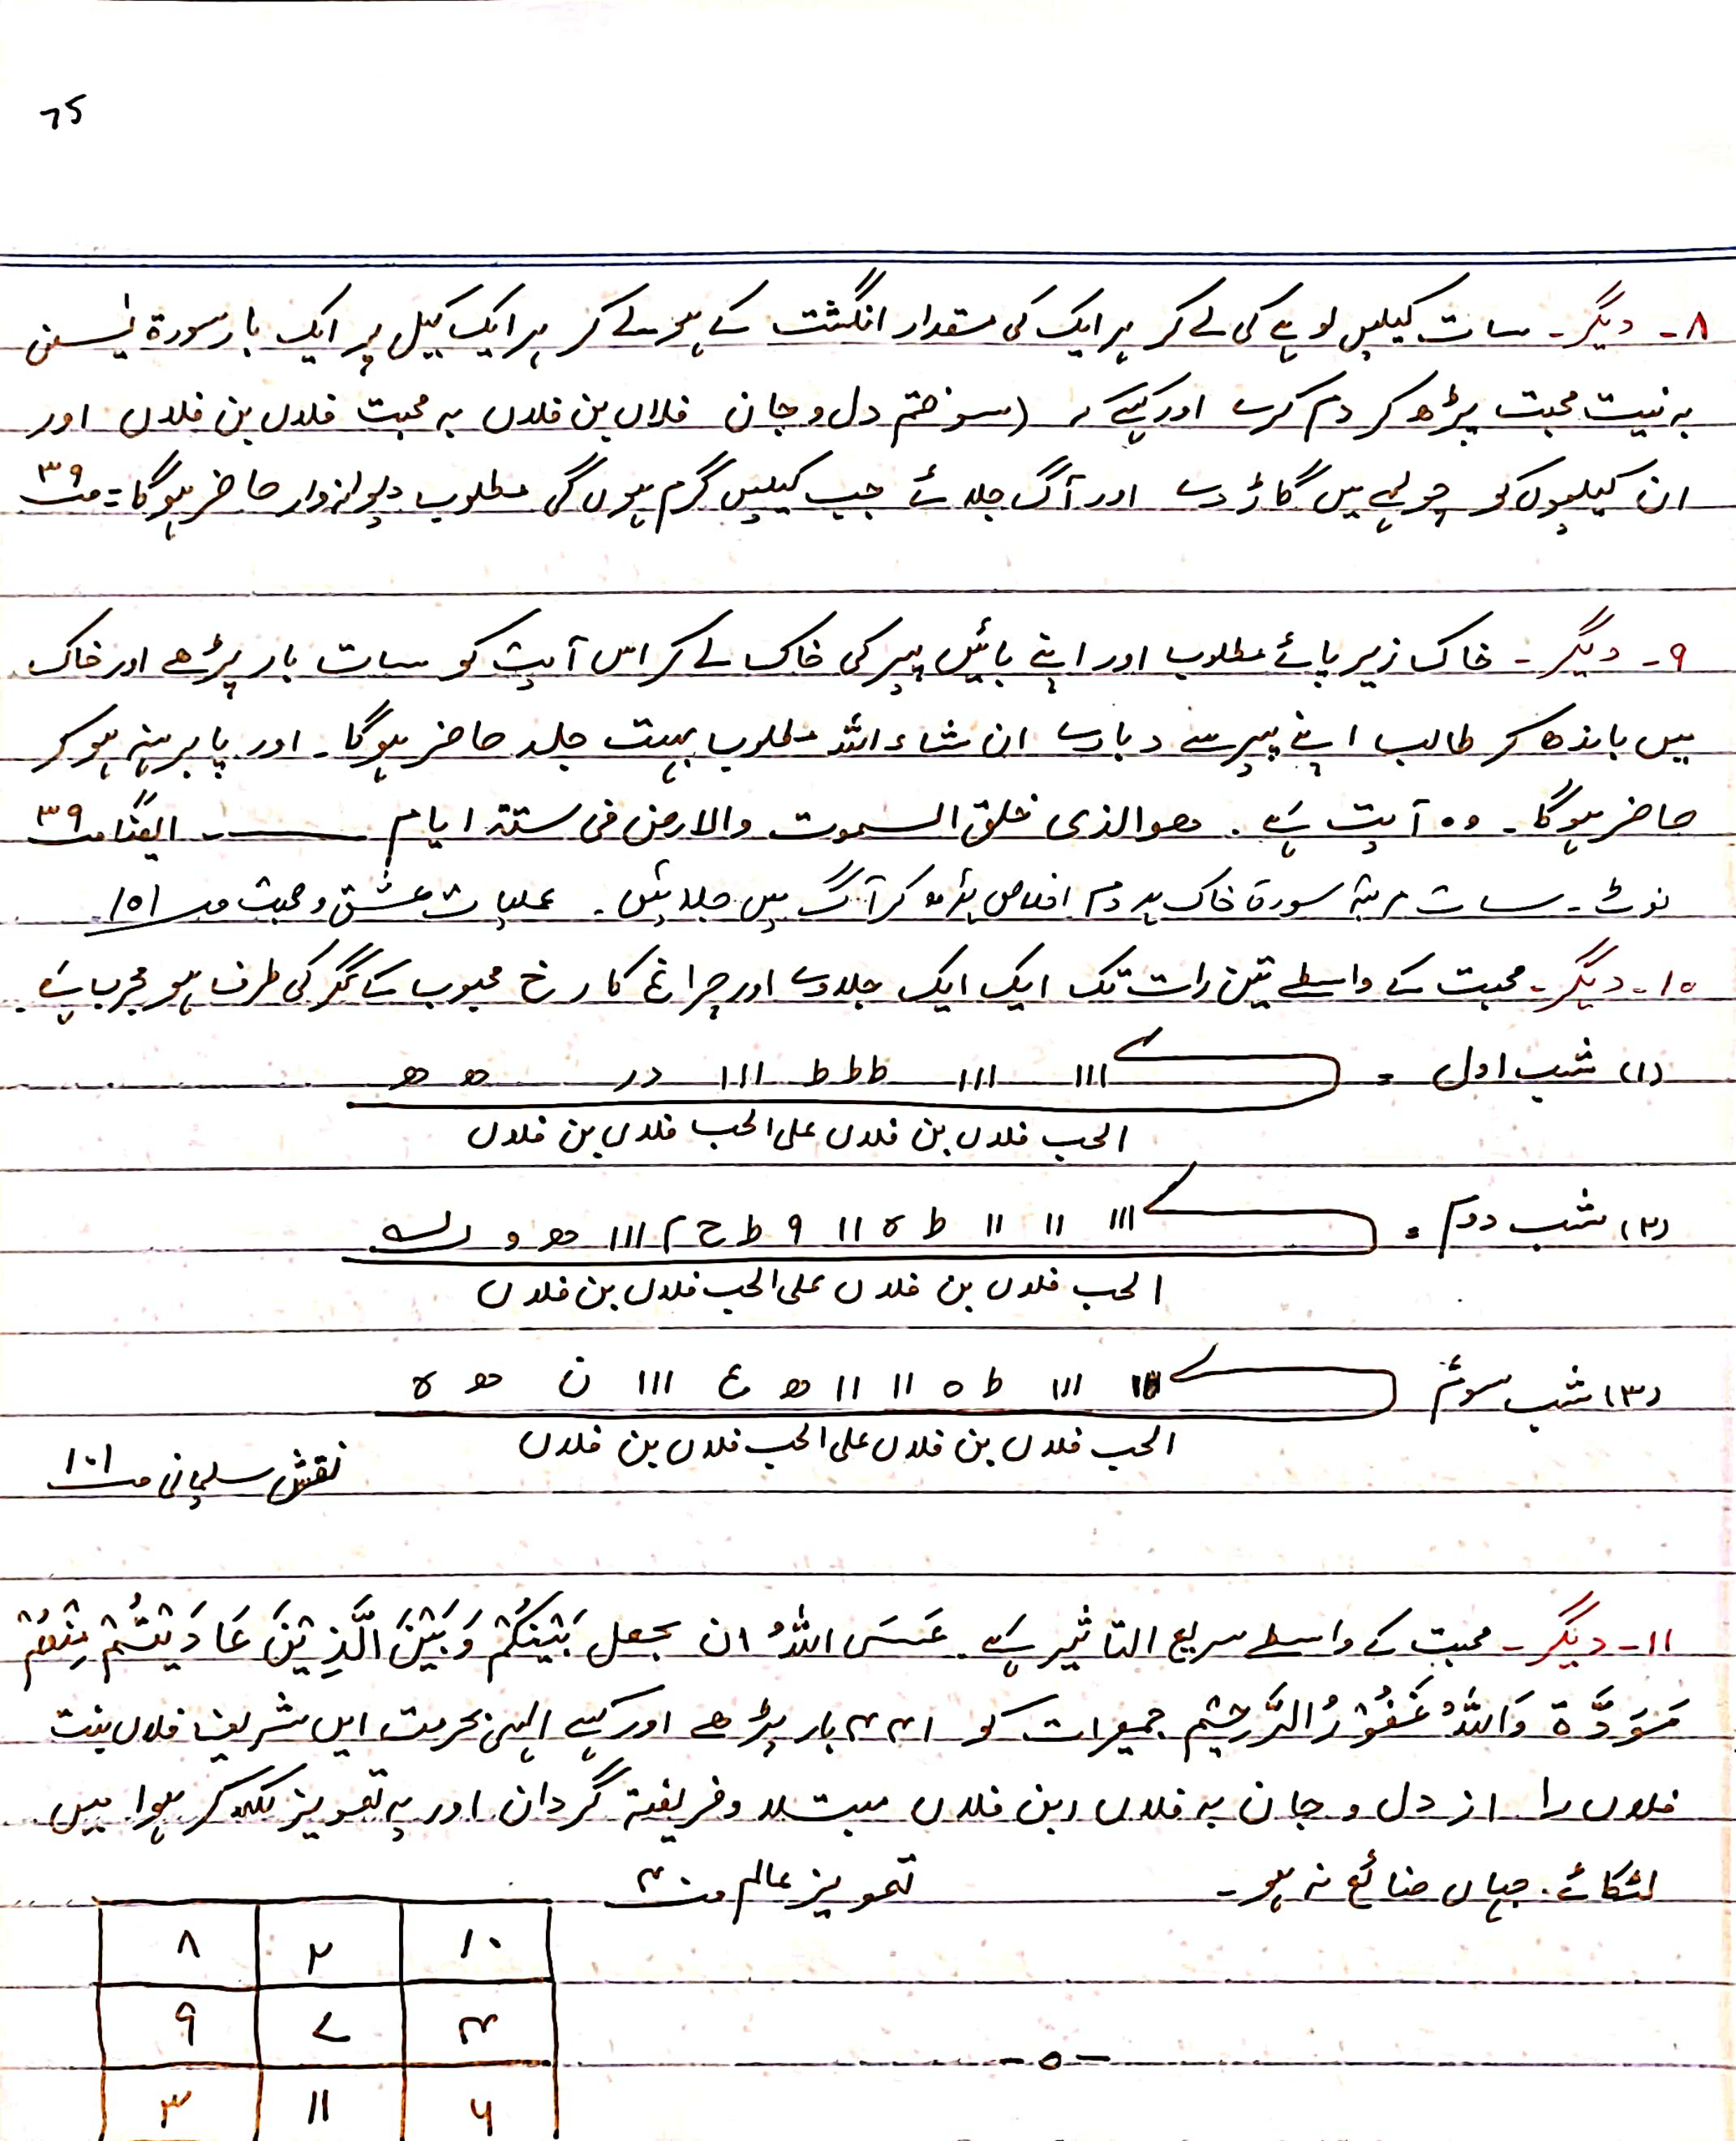 75
۸ - دیگر - سات کیلیں لوہے کی لے کر ہر ایک کی مقدار انگشت کے ہو لے کر ہر ایک کیل پر ایک بار سورۃ یٰسین
بہ نیت محبت پڑھ کر دم کرے اور کہے ، (سوختم دل و جان فلاں بن فلاں بہ محبت فلاں بن فلاں اور
ان کیلیوں کو چولہے میں گاڑ دے اور آگ جلائے جب کیلیں گرم ہوں گی مطلوب دیوانہ وار حاضر ہوگا = صـ ۳۹
۹ - دیگر - خاک زیر پائے مطلوب اور اپنے بائیں پیر کی خاک لے کر اس آیت کو سات بار پڑھے اور خاک
میں باندھ کر طالب اپنے پیر سے دبادے ان شاء اللہ مطلوب بہت جلد حاضر ہوگا ۔ اور پا برہنہ ہو کر
حاضر ہوگا ۔ وہ آیت ہے ۔ ھو الذی خلق السموت والارض فی ستۃ ایام ـــــ ایضًا صـ ۳۹
نوٹ - سات مرتبہ سورۃ خاک پر دم اخلاص پڑھ کر آگ میں جلائیں ۔ عملیات عشق و محبت صـ ۱۵۱
۱۰ - دیگر - محبت کے واسطے تین رات تک ایک ایک جلادے اور چراغ کا رخ محبوب کے گھر کی طرف ہو مجرب ہے ۔
(۱) شب اول = ااا ااا ط ط ط ااا در ھ ھ
الحب فلاں بن فلاں علی الحب فلاں بن فلاں
(۲) شب دوم = ااا اا اا ط ہ اا ۹ ط ح م ااا ھو و
الحب فلاں بن فلاں علی الحب فلاں بن فلاں
(۳) شب سوئم ااا ط ہ اا اا ھ ع ااا ن ھو ہ
الحب فلاں بن فلاں علی الحب فلاں بن فلاں
نقش سلیمانی صـ ۱۰۱
۱۱ - دیگر - محبت کے واسطے سریع التاثیر ہے ۔ عَسَى اللّٰهُ ان یجعل بَيْنَكُمْ وَبَيْنَ الَّذِيْنَ عَادَيْتُمْ مِنْهُمْ
مَوَدَّة وَاللّٰهُ غَفُوْرُ الرَّحِيْم جمعرات کو ۴۴۱ بار پڑھے اور کہے الہٰی بحرمت ایں شریف فلاں بنت
فلاں را از دل و جان بہ فلاں بن فلاں مبتلا و فریفتہ گردان اور یہ تعویز لکھ کر ہوا میں
لٹکائے ۔ جہاں ضائع نہ ہو ۔ تعویز عالم صـ ۴
۸ ۲ ۱۰
۹ ۷ ۴
۳ ۱۱ ۶